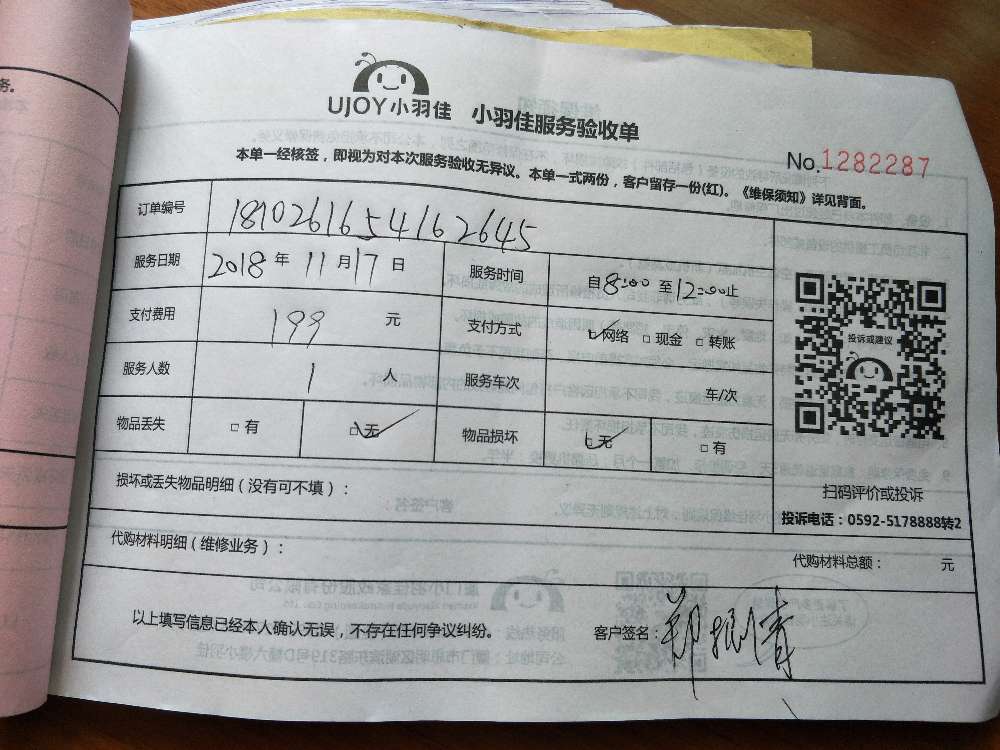 UJOY小羽佳 小羽佳服务验收单
No.1282287
本单一经核签，即视为对本次服务验收无异议。本单一式两份，客户留存一份(红)。《维保须知》详见背面。
订单编号 18102616541 62645
服务日期 2018 年 11 月 17 日 服务时间 自 8:00 至 12:00 止
支付费用 199 元 支付方式 ☑网络 □现金 □转账
服务人数 1 人 服务车次 车/次
物品丢失 □有 ☑无 物品损坏 ☑无 □有
投诉或建议
扫码评价或投诉
投诉电话：0592-5178888转2
损坏或丢失物品明细（没有可不填）：
代购材料明细（维修业务）： 代购材料总额： 元
以上填写信息已经本人确认无误，不存在任何争议纠纷。 客户签名：郑
务。